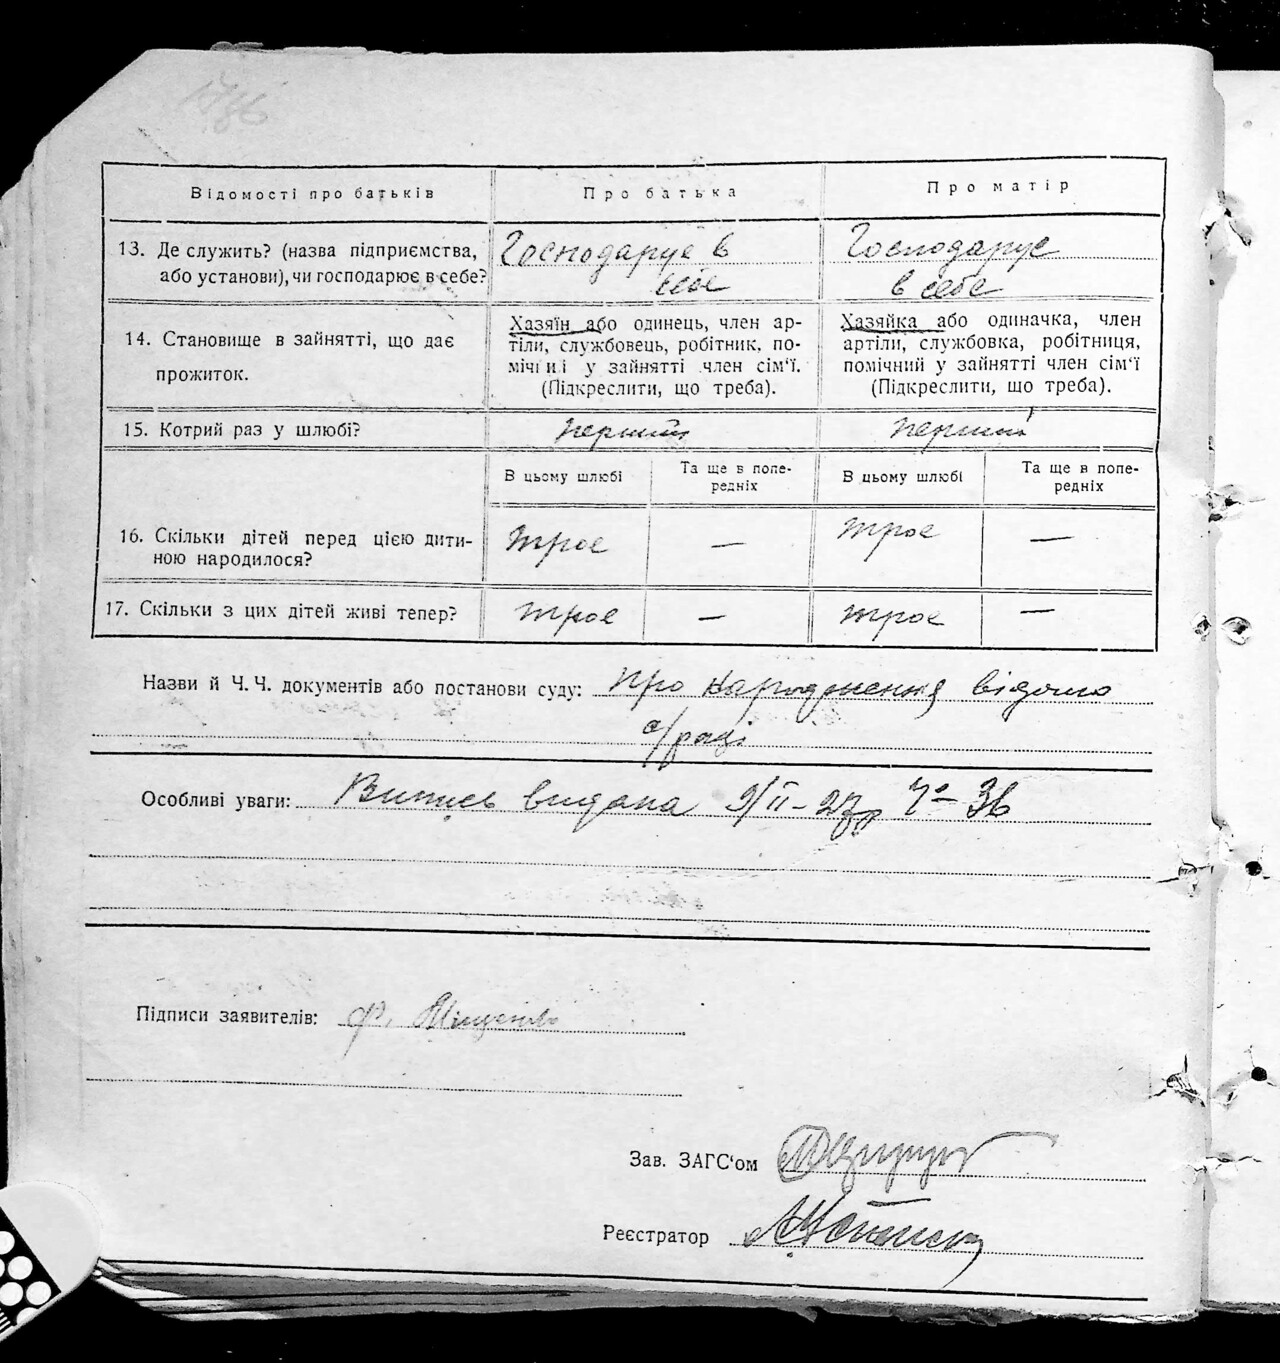 Відомості про батьків
Про батька
Про матір
13. Де служить? (назва підприємства,
або установи), чи господарює в себе?
Господарує в
себе
Господарує
в себе
14. Становище в зайнятті, що дає
прожиток.
Хазяїн або одинець, член ар-
тіли, службовець, робітник, по-
мічниі у зайнятті член сім'ї.
(Підкреслити, що треба).
Хазяйка або одиначка, член
артіли, службовка, робітниця,
помічний у зайнятті член сім'ї
(Підкреслити, що треба).
15. Котрий раз у шлюбі?
перший
перший
В цьому шлюбі
Та ще в попе-
редніх
В цьому шлюбі
Та ще в попе-
редніх
16. Скільки дітей перед цією дити-
ною народилося?
трое
—
трое
—
17. Скільки з цих дітей живі тепер?
трое
—
трое
—
Назви й Ч. Ч. документів або постанови суду: про народження відомо
с/раді
Особливі уваги: Випись видана 9/II-27р Ч° 36
Підписи заявителів: Ф.
Зав. ЗАГС'ом
Реєстратор